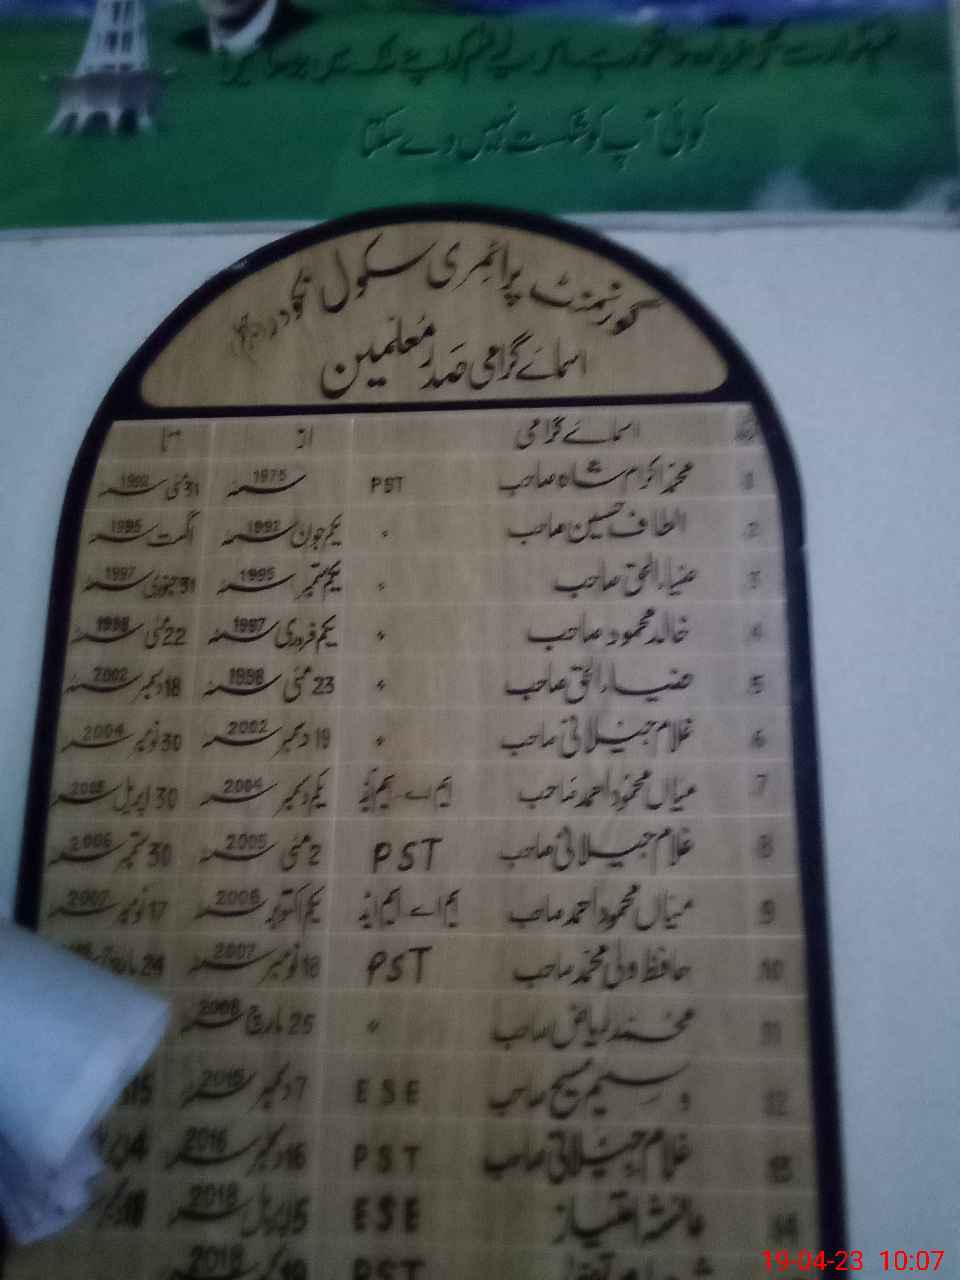 کوئی آپ کو شکست نہیں دے سکتا
گورنمنٹ پرائمری سکول نکودر
اسمائے گرامی صدر معلمین
اسمائے گرامی از تا
1 محمد اکرم شاہ صاحب PST 1975 31 مئی 1992
2 الطاف حسین صاحب " یکم جون 1992 اگست 1995
3 ضیاء الحق صاحب " یکم ستمبر 1995 31 جنوری 1997
4 خالد محمود صاحب " یکم فروری 1997 22 مئی 1998
5 ضیاء الحق صاحب " 23 مئی 1998 18 دسمبر 2002
6 غلام جیلانی صاحب " 19 دسمبر 2002 30 نومبر 2004
7 میاں محمود احمد صاحب ایم اے ایم ایڈ یکم دسمبر 2004 30 اپریل 2005
8 غلام جیلانی صاحب PST 2 مئی 2005 30 ستمبر 2006
9 میاں محمود احمد صاحب ایم اے ایم ایڈ یکم اکتوبر 2006 17 نومبر 2007
10 حافظ ولی محمد صاحب PST 18 نومبر 2007 24
11 محمد ریاض صاحب " 25 مارچ 2008
12 وسیم مسیح صاحب ESE 7 دسمبر 2015
13 غلام جیلانی صاحب PST 16 دسمبر 2016
14 عائشہ امتیاز ESE 5 اپریل 2018
PST 2018
19-04-23 10:07